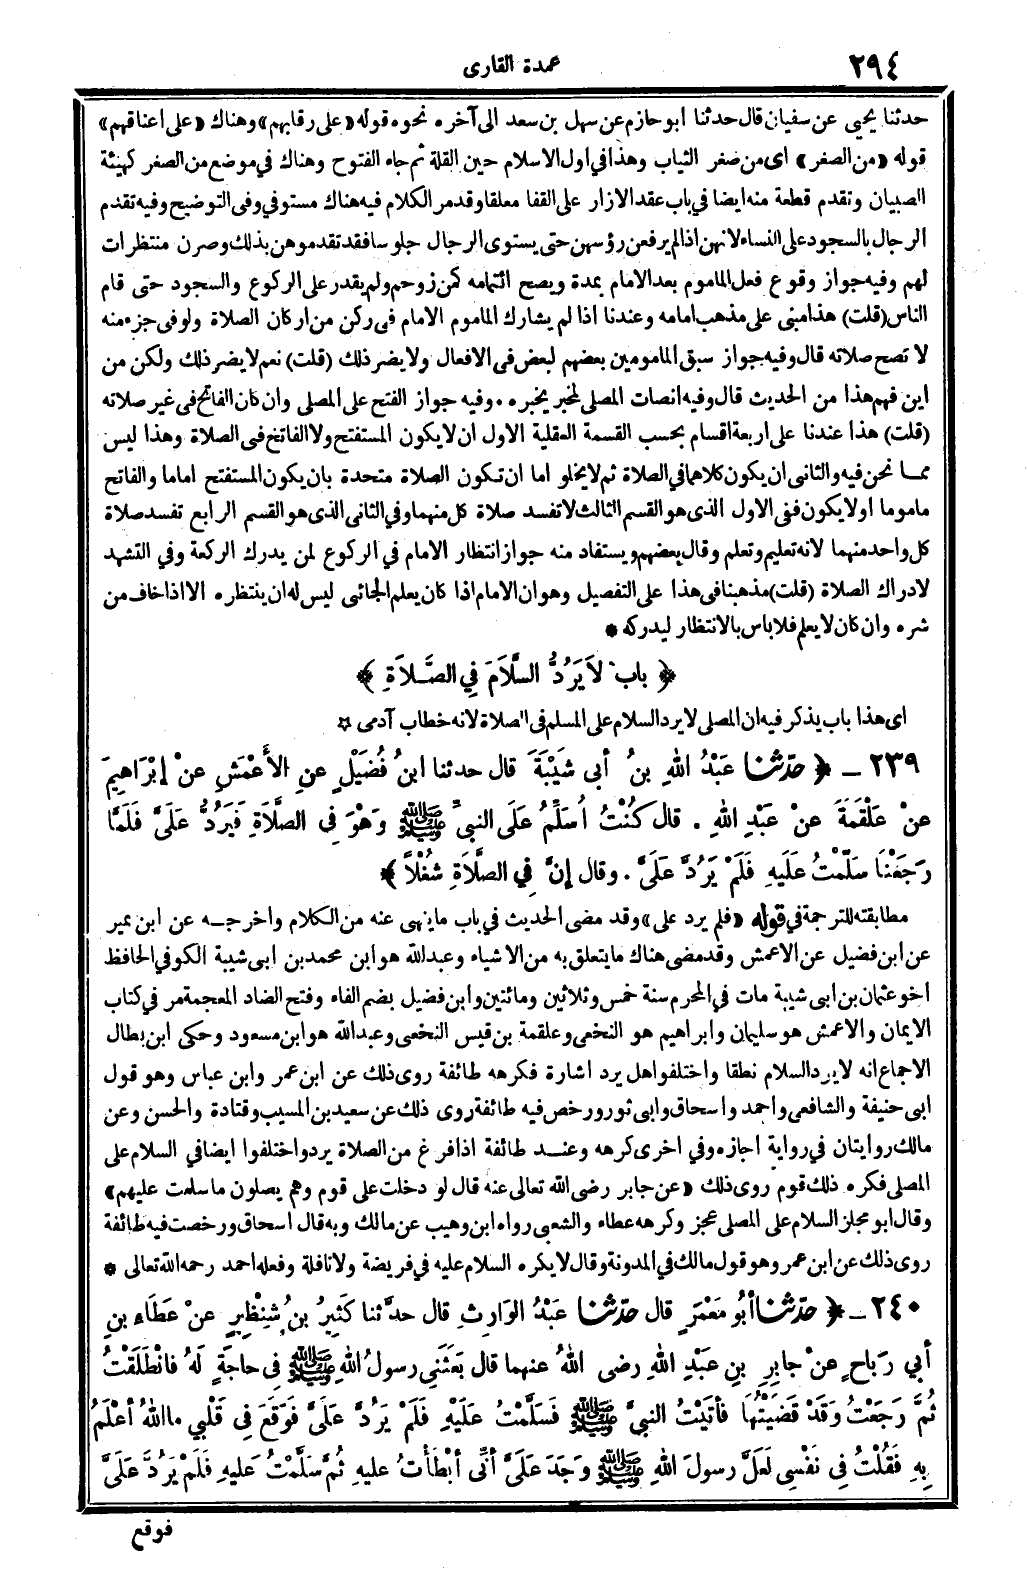 ٢٩٤
عمدة القارى
حدثنا يحيى عن سفيان قال حدثنا ابو حازم عن سهل بن سعد الى آخره نحوه قوله «على رقابهم» وهناك «على اعناقهم»
قوله «من الصغر» اى من صغر الثياب وهذا في اول الاسلام حين القلة ثم جاء الفتوح وهناك في موضع من الصغر كهيئة
الصبيان وتقدم قطعة منه ايضا في باب عقد الازار على القفا معلقا وقد مر الكلام فيه هناك مستوفي وفى التوضيح وفيه تقدم
الرجال بالسجود على النساء لانهن اذا لم يرفعن رؤسهن حتى يستوى الرجال جلوسا فقد تقدموهن بذلك وصرن منتظرات
لهم وفيه جواز وقوع فعل الماموم بعد الامام بمدة ويصح ائتمامه كمن زوحم ولم يقدر على الركوع والسجود حتى قام
الناس (قلت) هذا مبنى على مذهب امامه وعندنا اذا لم يشارك الماموم الامام فى ركن من اركان الصلاة ولو فى جزء منه
لا تصح صلاته قال وفيه جواز سبق المامومين بعضهم لبعض فى الافعال ولا يضر ذلك (قلت) نعم لا يضر ذلك ولكن من
اين فهم هذا من الحديث قال وفيه انصات المصلى لمخبر يخبره . وفيه جواز الفتح على المصلى وان كان الفاتح فى غير صلاته
(قلت) هذا عندنا على اربعة اقسام بحسب القسمة العقلية الاول ان لا يكون المستفتح ولا الفاتح فى الصلاة وهذا ليس
مما نحن فيه والثانى ان يكون كلاهما في الصلاة ثم لا يخلو اما ان تكون الصلاة متحدة بان يكون المستفتح اماما والفاتح
ماموما اولا يكون ففى الاول الذى هو القسم الثالث لا تفسد صلاة كل منهما وفي الثانى الذى هو القسم الرابع تفسد صلاة
كل واحد منهما لانه تعليم وتعلم وقال بعضهم ويستفاد منه جواز انتظار الامام في الركوع لمن يدرك الركعة وفي التشهد
لادراك الصلاة (قلت) مذهبنا فى هذا على التفصيل وهو ان الامام اذا كان يعلم الجائى ليس له ان ينتظره الا اذا خاف من
شره وان كان لا يعلم فلا باس بالانتظار ليدركه *
﴿ بابٌ لاَ يَرُدُّ السَّلاَمَ فِي الصَّلاَةِ ﴾
اى هذا باب يذكر فيه ان المصلى لا يرد السلام على المسلم فى الصلاة لانه خطاب آدمى ☆
٢٣٩ ـ ﴿ حَدَّثَنَا عَبْدُ اللهِ بنُ أبى شَيْبَةَ قال حدثنا ابنُ فُضَيْلٍ عنِ الأَعْمَشِ عنْ إبْرَاهِيمَ
عنْ عَلْقَمَةَ عنْ عبْدِ اللهِ . قال كُنْتُ أُسَلِّمُ عَلَى النبىِّ ﷺ وَهْوَ فِى الصَّلاَةِ فَيَرُدُّ عَلَىَّ فَلَمَّا
رَجَعْنَا سَلَّمْتُ عَلَيهِ فَلَمْ يَرُدَّ عَلَىَّ . وقال إنَّ فِي الصَّلاَةِ شُغْلاً ﴾
مطابقته للترجمة في قوله «فلم يرد على» وقد مضى الحديث في باب ما ينهى عنه من الكلام واخرجه عن ابن نمير
عن ابن فضيل عن الاعمش وقد مضى هناك ما يتعلق به من الاشياء وعبد الله هو ابن محمد بن ابى شيبة الكوفي الحافظ
اخو عثمان بن ابى شيبة مات في المحرم سنة خمس وثلاثين ومائتين وابن فضيل بضم الفاء وفتح الضاد المعجمة مر في كتاب
الايمان والاعمش هو سليمان وابراهيم هو النخعى وعلقمة بن قيس النخعى وعبد الله هو ابن مسعود وحكى ابن بطال
الاجماع انه لا يرد السلام نطقا واختلفوا هل يرد اشارة فكرهه طائفة روى ذلك عن ابن عمر وابن عباس وهو قول
ابى حنيفة والشافعى واحمد واسحاق وابى ثور ورخص فيه طائفة روى ذلك عن سعيد بن المسيب وقتادة والحسن وعن
مالك روايتان في رواية اجازه وفي اخرى كرهه وعند طائفة اذا فرغ من الصلاة يرد واختلفوا ايضا في السلام على
المصلى فكره ذلك قوم روى ذلك «عن جابر رضى الله تعالى عنه قال لو دخلت على قوم وهم يصلون ما سلمت عليهم»
وقال ابو مجلز السلام على المصلى عجز وكرهه عطاء والشعبى رواه ابن وهب عن مالك وبه قال اسحاق ورخصت فيه طائفة
روى ذلك عن ابن عمر وهو قول مالك في المدونة وقال لا يكره السلام عليه في فريضة ولا نافلة وفعله احمد رحمه الله تعالى *
٢٤٠ ـ ﴿ حَدَّثَنَا أَبُو مَعْمَرٍ قال حَدَّثَنَا عَبْدُ الوَارِثِ قال حدَّثنا كَثِيرُ بنُ شِنْظِيرٍ عنْ عَطَاءِ بنِ
أبي رَبَاحٍ عنْ جابِرِ بنِ عَبْدِ اللهِ رضى اللهُ عنهما قال بَعَثَنِى رسولُ اللهِ ﷺ فِى حاجَةٍ لَهُ فانْطَلَقْتُ
ثُمَّ رَجَعْتُ وَقَدْ قَضَيْتُهَا فأتَيْتُ النبىَّ ﷺ فَسَلَّمْتُ عَلَيْهِ فَلَمْ يَرُدَّ عَلَىَّ فَوَقَعَ فِى قَلْبِي ما اللهُ أعْلَمُ
بِهِ فَقُلْتُ فِى نَفْسِى لَعَلَّ رسولَ اللهِ ﷺ وَجَدَ عَلَىَّ أنِّى أبْطَأْتُ عليهِ ثُمَّ سَلَّمْتُ عَليهِ فَلَمْ يَرُدَّ عَلَىَّ
فوقع